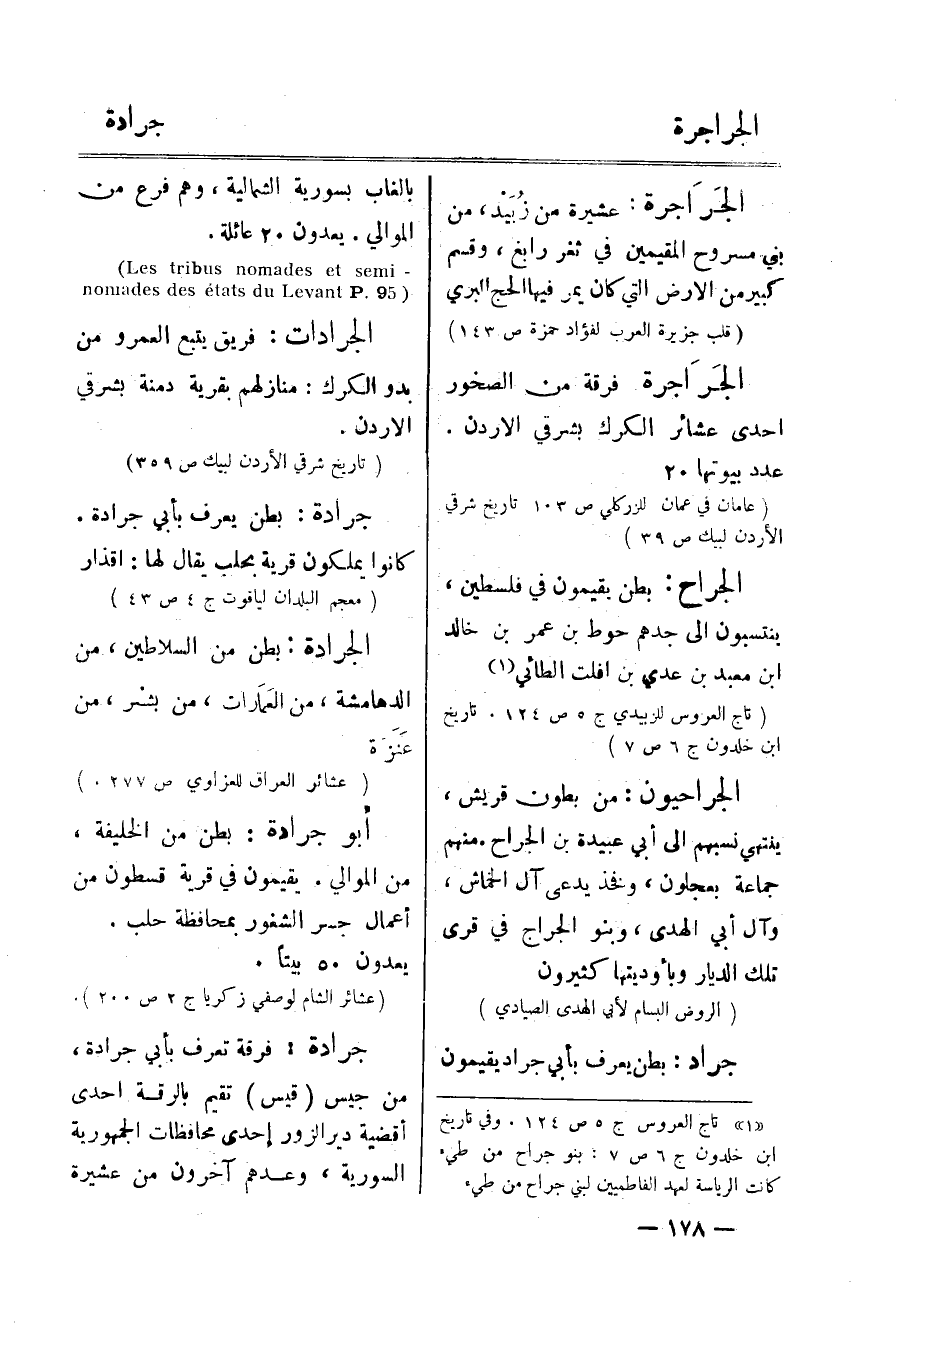 الجراجرة
جرادة
الجَرَاجرة : عشيرة من زُبَيْد، من
بني مسروح المقيمين في ثغر رابغ ، وقسم
كبير من الارض التي كان يمر فيها الحج البري
( قلب جزيرة العرب لفؤاد حمزة ص ١٤٣)
الجَرَاجرة فرقة من الصخور
احدى عشائر الكرك بشرقي الاردن .
عدد بيوتها ٢٠
( عامان في عمان للزركلي ص ١٠٣ تاريخ شرقي
الأردن لبيك ص ٣٩ )
الجراح : بطن يقيمون في فلسطين ،
ينتسبون الى جدهم حوط بن عمر بن خالد
ابن معبد بن عدي بن افلت الطائي(١)
( تاج العروس للزبيدي ج ٥ ص ١٢٤ . تاريخ
ابن خلدون ج ٦ ص ٧ )
الجراحيون : من بطون قريش ،
ينتهي نسبهم الى أبي عبيدة بن الجراح . منهم
جماعة بعجلون ، وفخذ يدعى آل الحماش ،
وآل أبي الهدى ، وبنو الجراح في قرى
تلك الديار وبأوديتها كثيرون
( الروض البسام لأبي الهدى الصيادي )
جراد : بطن يعرف بأبي جراد يقيمون
«١» تاج العروس ج ٥ ص ١٢٤ . وفي تاريخ
ابن خلدون ج ٦ ص ٧ : بنو جراح من طيء
كانت الرياسة لعهد الفاطميين لبني جراح من طيء
بالغاب بسورية الشمالية ، وهم فرع من
الموالي . يعدون ٢٠ عائلة .
(Les tribus nomades et semi -
nomades des états du Levant P. 95 )
الجرادات : فريق يتبع العمرو من
بدو الكرك : منازلهم بقرية دمنة بشرقي
الاردن .
( تاريخ شرقي الأردن لبيك ص ٣٥٩)
جرادة : بطن يعرف بأبي جرادة .
كانوا يملكون قرية بحلب يقال لها : اقذار
( معجم البلدان لياقوت ج ٤ ص ٤٣ )
الجرادة : بطن من السلاطين ، من
الدهامشة ، من العَمارات ، من بشْر ، من
عَنَزَة
( عشائر العراق للعزاوي ص ٢٧٧ . )
أبو جرادة : بطن من الخليفة ،
من الموالي . يقيمون في قرية قسطون من
أعمال جسر الشغور بمحافظة حلب .
يعدون ٥٠ بيتاً .
(عشائر الشام لوصفي زكريا ج ٢ ص ٢٠٠ ).
جرادة : فرقة تعرف بأبي جرادة ،
من جيس ( قيس ) تقيم بالرقة احدى
أقضية دير الزور إحدى محافظات الجمهورية
السورية ، وعدهم آخرون من عشيرة
— ١٧٨ —